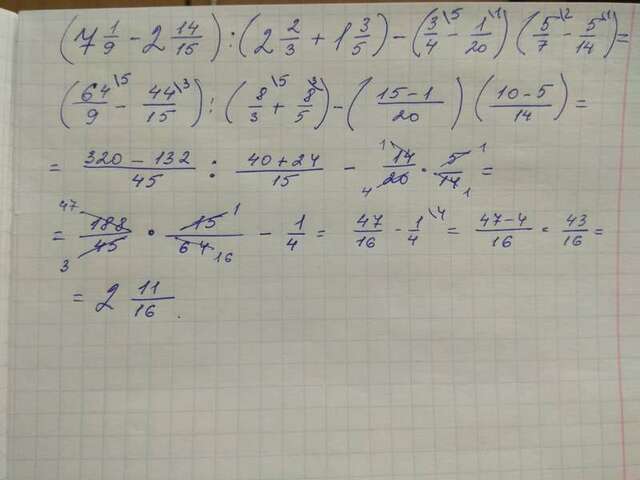 (7 1/9 - 2 14/15) : (2 2/3 + 1 3/5) - (3/4 \5 - 1/20 \1) (5/7 \2 - 5/14 \1) =
(64/9 \5 - 44/15 \3) : (8/3 \5 + 8/5 \3) - (15-1/20) (10-5/14) =
= 320-132/45 : 40+24/15 - 1 14/20 4 · 5/14 1 1 =
= 47 188/45 3 · 15/64 1 16 - 1/4 = 47/16 - 1/4 \4 = 47-4/16 · 43/16 =
= 2 11/16.